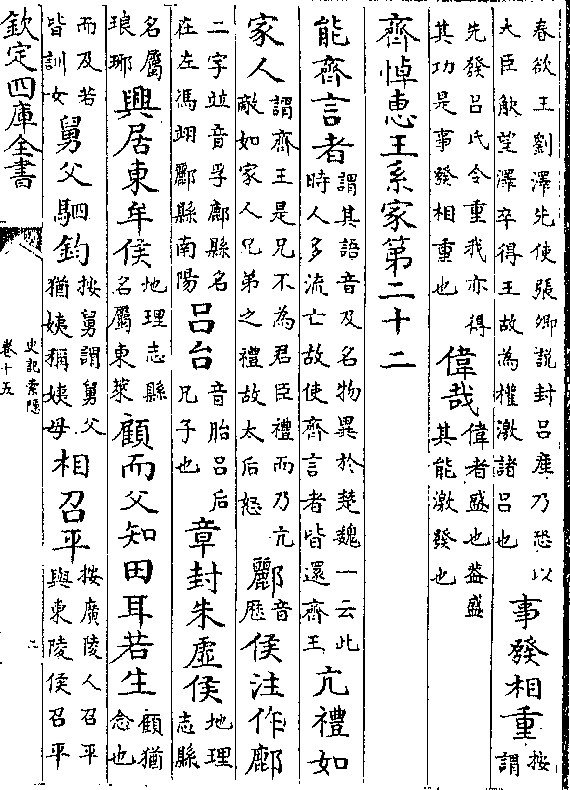 春欲王劉澤先使張卿說封呂産乃恐以大臣觖望澤卒得王故為權激諸呂也事發相重按謂
先發呂氏令重我亦得其功是事發相重也偉哉偉者盛也葢盛其能激發也
齊悼惠王系家第二十二
能齊言者謂其語音及名物異於楚魏一云此時人多流亡故使齊言者皆還齊王亢禮如
家人謂齊王是兄不為君臣禮而乃亢敵如家人兄弟之禮故太后怒酈音歴侯注作鄜
二字竝音孚鄜縣名在左馮翊酈縣南陽呂台音胎呂后兄子也章封朱虛侯地理志縣
名屬琅琊興居東牟侯地理志縣名屬東萊顧而父知田耳若生顧猶念也
而及若皆訓女舅父駟鈞按舅謂舅父猶姨稱姨母相召平按廣陵人召平與東陵侯召平
欽定四庫全書
史記索隱
卷十五
二